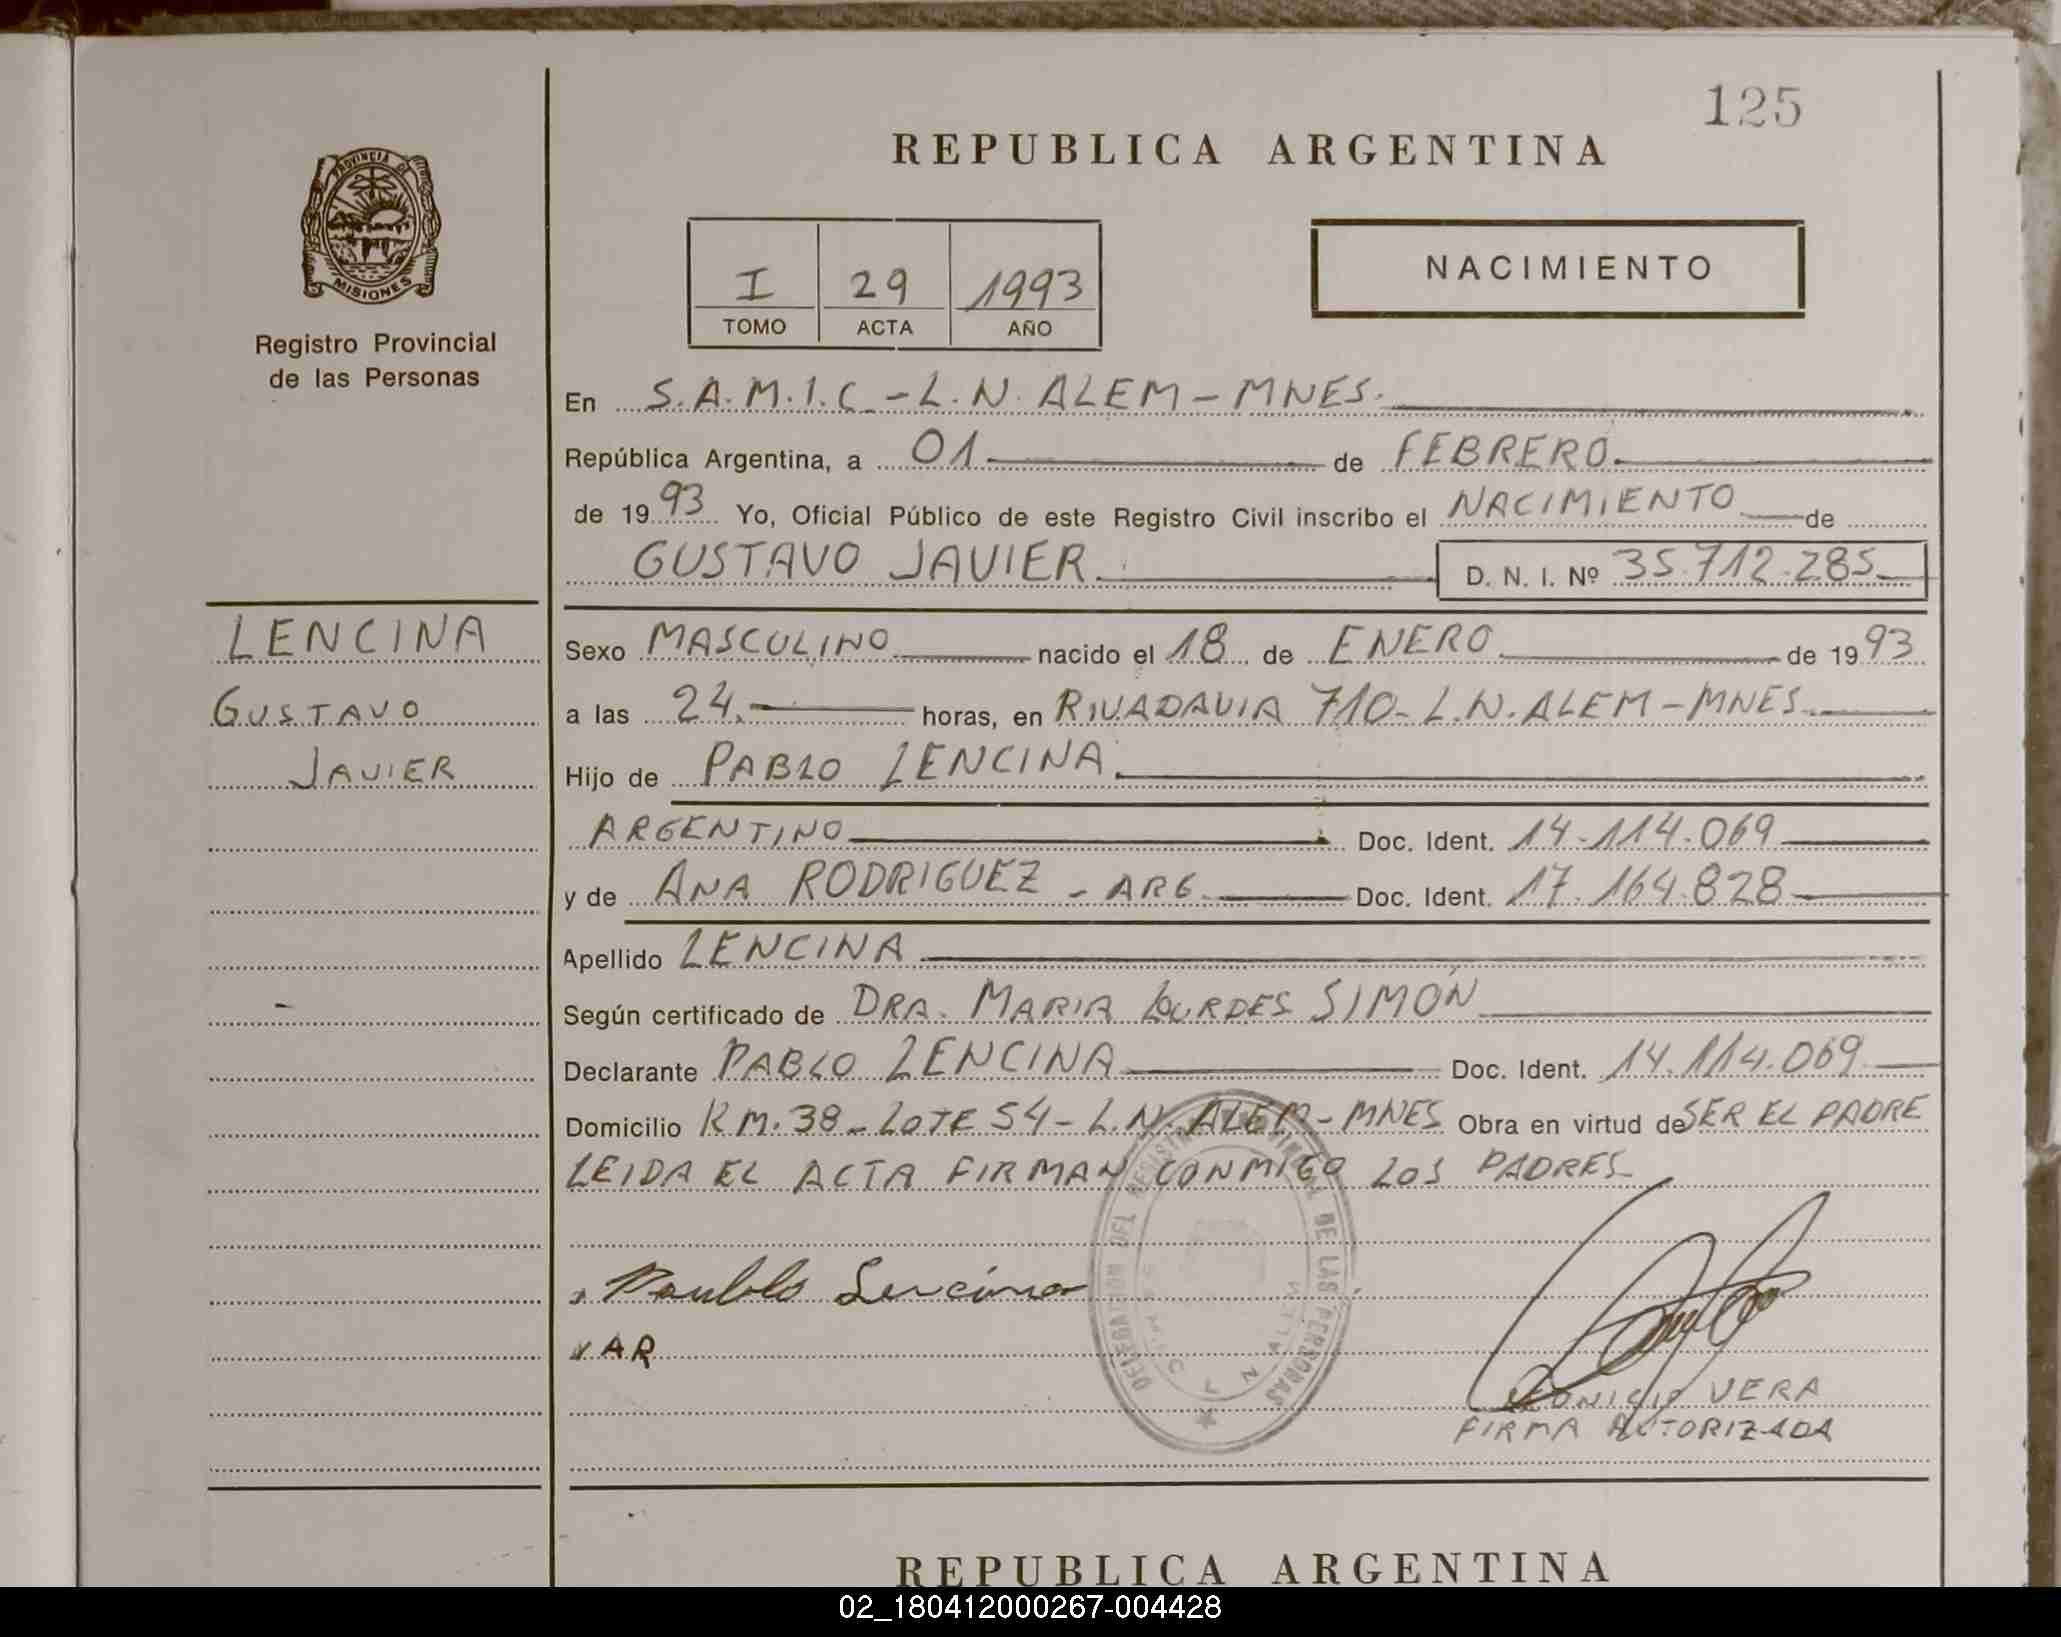 125
REPUBLICA ARGENTINA
PROVINCIA DE
MISIONES
Registro Provincial
de las Personas
I 29 1993
TOMO ACTA AÑO
NACIMIENTO
En S.A.M.I.C. - L.N. ALEM - MNES.
República Argentina, a 01 de FEBRERO.
de 1993 Yo, Oficial Público de este Registro Civil inscribo el NACIMIENTO de
GUSTAVO JAVIER D. N. I. Nº 35.712.285
LENCINA
GUSTAVO
JAVIER
Sexo MASCULINO nacido el 18 de ENERO de 1993
a las 24. horas, en RIVADAVIA 710 - L.N. ALEM - MNES.
Hijo de PABLO LENCINA.
ARGENTINO Doc. Ident. 14.114.069
y de ANA RODRIGUEZ - ARG. Doc. Ident. 17.164.828
Apellido LENCINA
Según certificado de DRA. MARIA LOURDES SIMÓN
Declarante PABLO LENCINA Doc. Ident. 14.114.069
Domicilio KM. 38 - LOTE 54 - L.N. ALEM - MNES Obra en virtud de SER EL PADRE
LEIDA EL ACTA FIRMAN CONMIGO LOS PADRES
Paublo Lencina
AR
DELEGACION DEL REGISTRO PROVINCIAL DE LAS PERSONAS
L N ALEM
VERA
FIRMA AUTORIZADA
REPUBLICA ARGENTINA
02_180412000267-004428